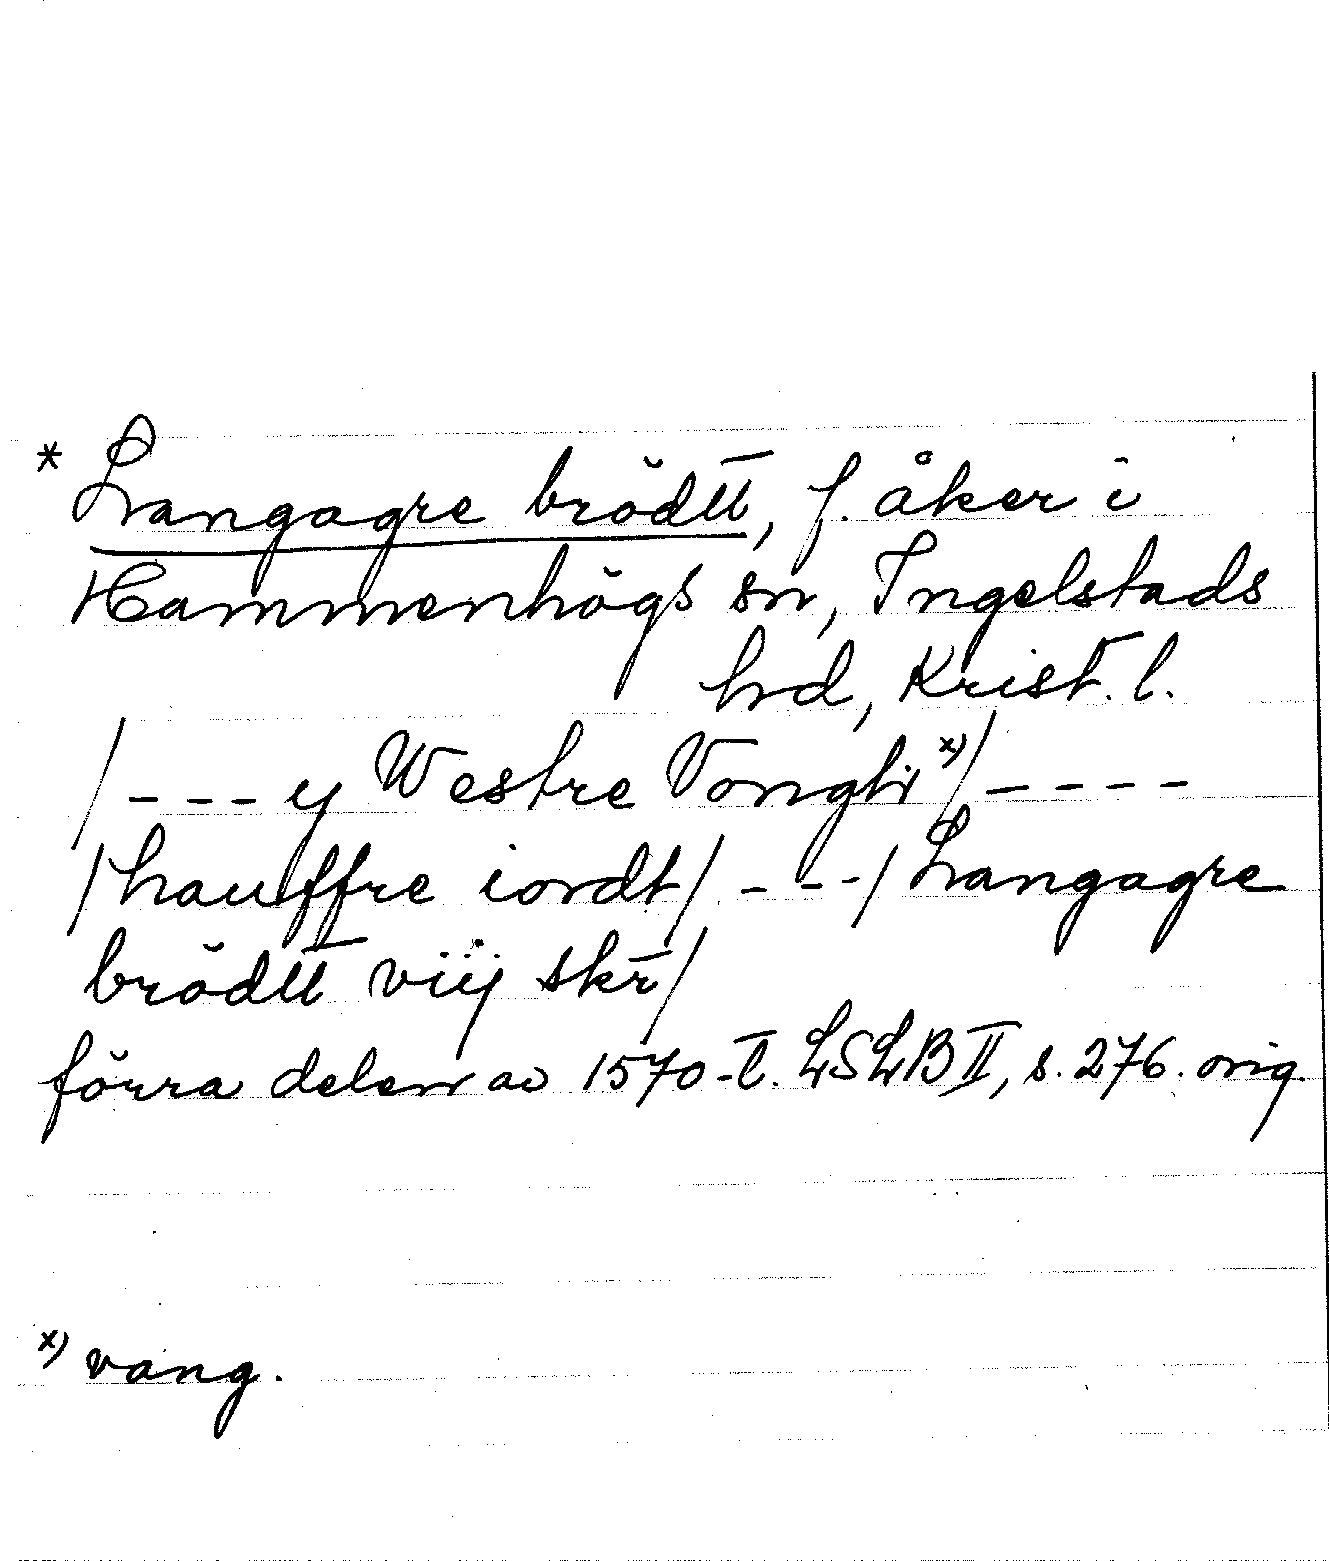 * Langagre brödtt, f. åker i
Hammenhögs sn, Ingelstads
hd, Krist. l.
/--- y Westre Vongh x)/----
/hauffre iordt/ ---/Langagre
brödtt viij skr/
förra delen av 1570-t. LSLB II, s. 276. orig.
x) vang.